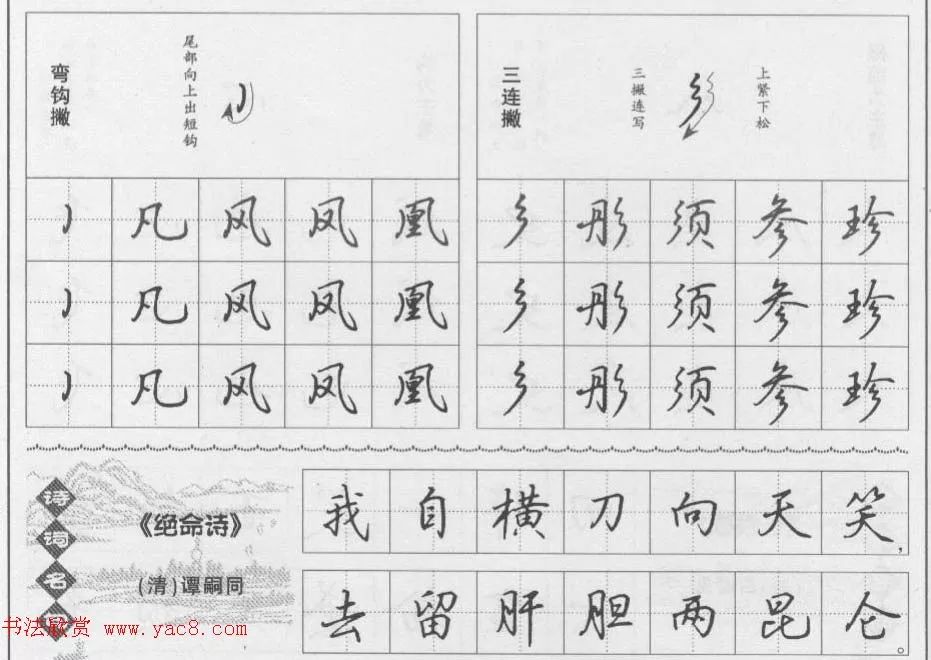 弯钩撇
尾部向上出短钩
三连撇
三撇连写
上紧下松
凡 风 凤 凰
彡 彤 须 参 珍
凡 风 凤 凰
彡 彤 须 参 珍
凡 风 凤 凰
彡 彤 须 参 珍
诗词名
《绝命诗》
(清)谭嗣同
我自横刀向天笑,
去留肝胆两昆仑。
书法欣赏 www.yac8.com